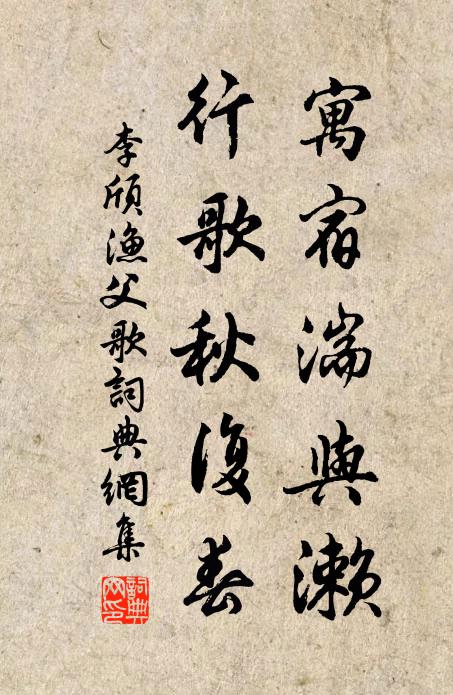 寓宿湍與瀨
行歌秋復春
李頎漁父歌詞典網集
詞典網印